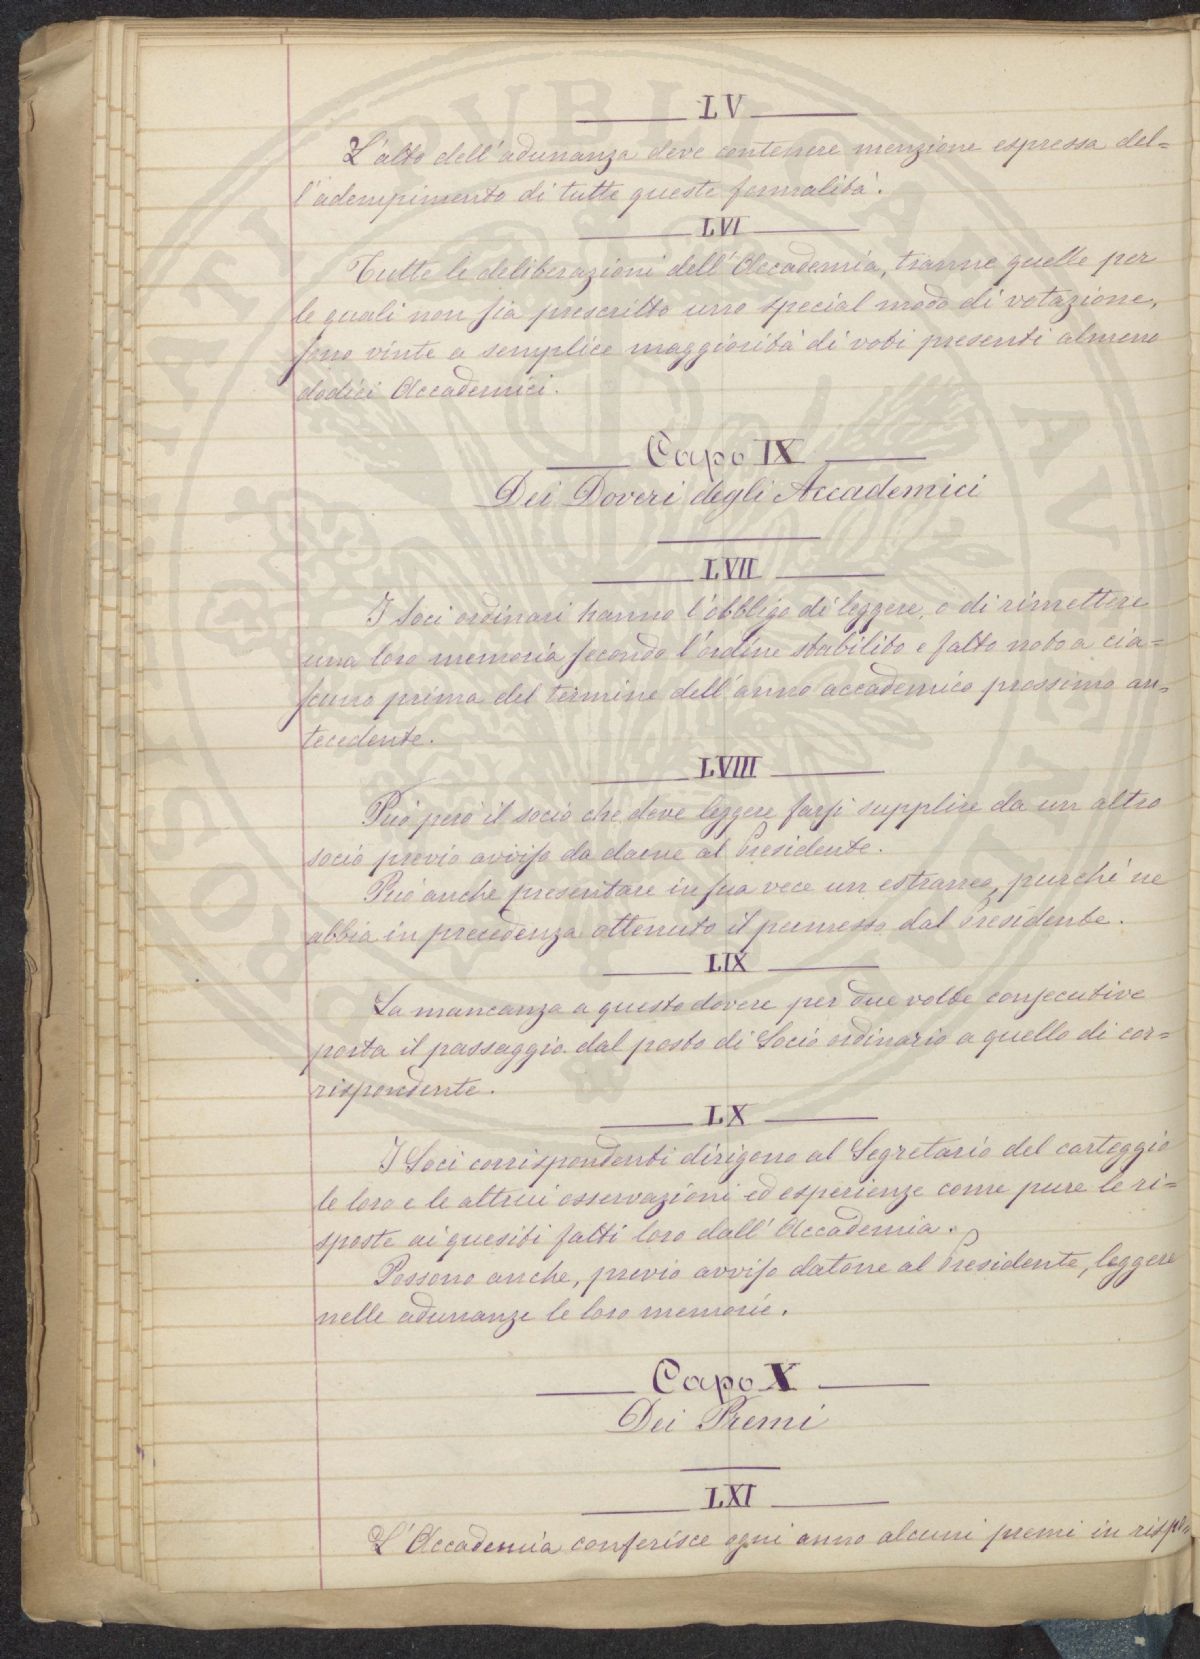 LV
L'atto dell'adunanza deve contenere menzione espressa del=
l'adempimento di tutte queste formalità.
LVI
Tutte le deliberazioni dell'Accademia, tranne quelle per
le quali non sia prescritto uno special modo di votazione,
sono vinte a semplice maggiorità di voti presenti almeno
dodici Accademici.
Capo IX
Dei Doveri degli Accademici
LVII
I Soci ordinari hanno l'obbligo di leggere, o di rimettere
una loro memoria secondo l'ordine stabilito e fatto noto a cia=
scuno prima del termine dell'anno accademico prossimo an=
tecedente.
LVIII
Può però il socio che deve leggere farsi supplire da un altro
socio previo avviso da darne al Presidente.
Può anche presentare in sua vece un estraneo, purché ne
abbia in precedenza ottenuto il permesso dal Presidente.
LIX
La mancanza a questo dovere per due volte consecutive
porta il passaggio dal posto di Socio ordinario a quello di cor=
rispondente.
LX
I Soci corrispondenti dirigono al Segretario del carteggio
le loro e le altrui osservazioni ed esperienze come pure le ri=
sposte ai quesiti fatti loro dall'Accademia.
Possono anche, previo avviso datone al Presidente, leggere
nelle adunanze le loro memorie.
Capo X
Dei Premi
LXI
L'Accademia conferisce ogni anno alcuni premi in rispo=